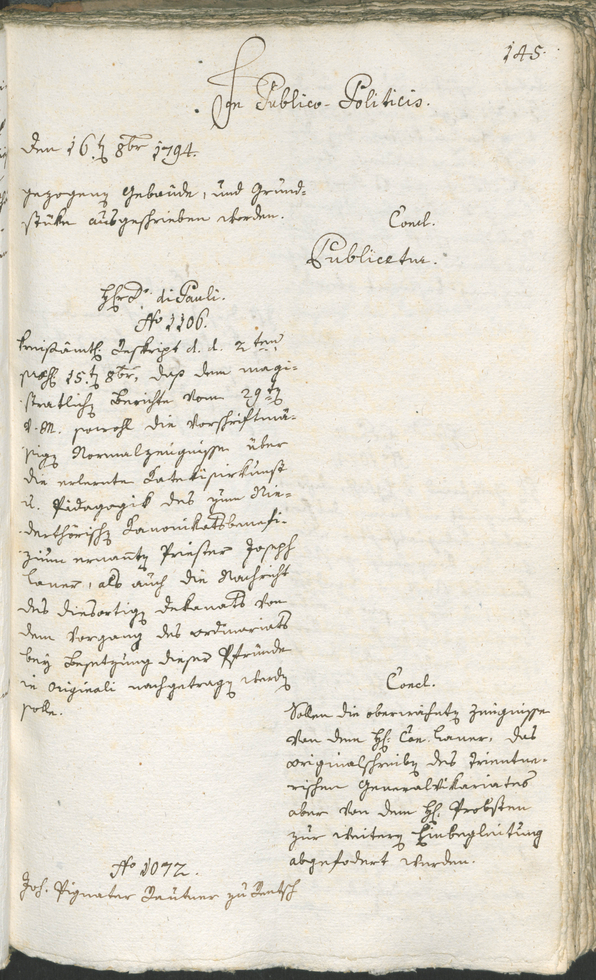 145.
In Publico-Politicis.
Den 16t 8br 1794.
gezogene Gebäude, und Grund-
stüke ausgeschrieben worden.
Concl.
Publicetur.
H: v: di Pauli.
No 1106.
Kreisämtl Reskript d. d. 2ten
15t 8br, daß dem magi-
stratlich Berichte vom 29t
v. M. sowohl die vorschriftmä-
sige Normalzeugnisse über
die erlernte Katekisirkunst
u. Pädagogik des zum Nie-
derthorisch Kanonikatsbenefi-
zium ernannt Priester Joseph
Laner, als auch die Nachricht
des diesortig Dekanats von
dem Vorgang des Ordinariats
bey Besetzung dieser Pfründe
in Originali nachgetrag werd
solle.
Concl.
Sollen die oberwähnt Zeugnisse
von dem H: Can. Laner, das
Originalschreib des Trientne-
rischen Generalvikariates
aber von dem H: Probsten
zur weitern Einbegleitung
abgefodert werden.
No 1072.
Joh. Pignater Rautner zu Rentsch